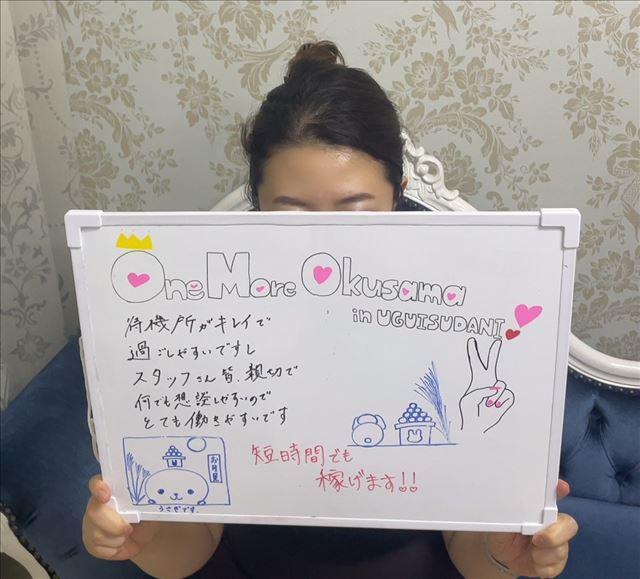 One More Okusama
in UGUISUDANI
待機所がキレイで
過ごしやすいですし
スタッフさん皆、親切で
何でも相談しやすいので
とても働きやすいです
短時間でも
稼げます!!
お月見
うさぎです。